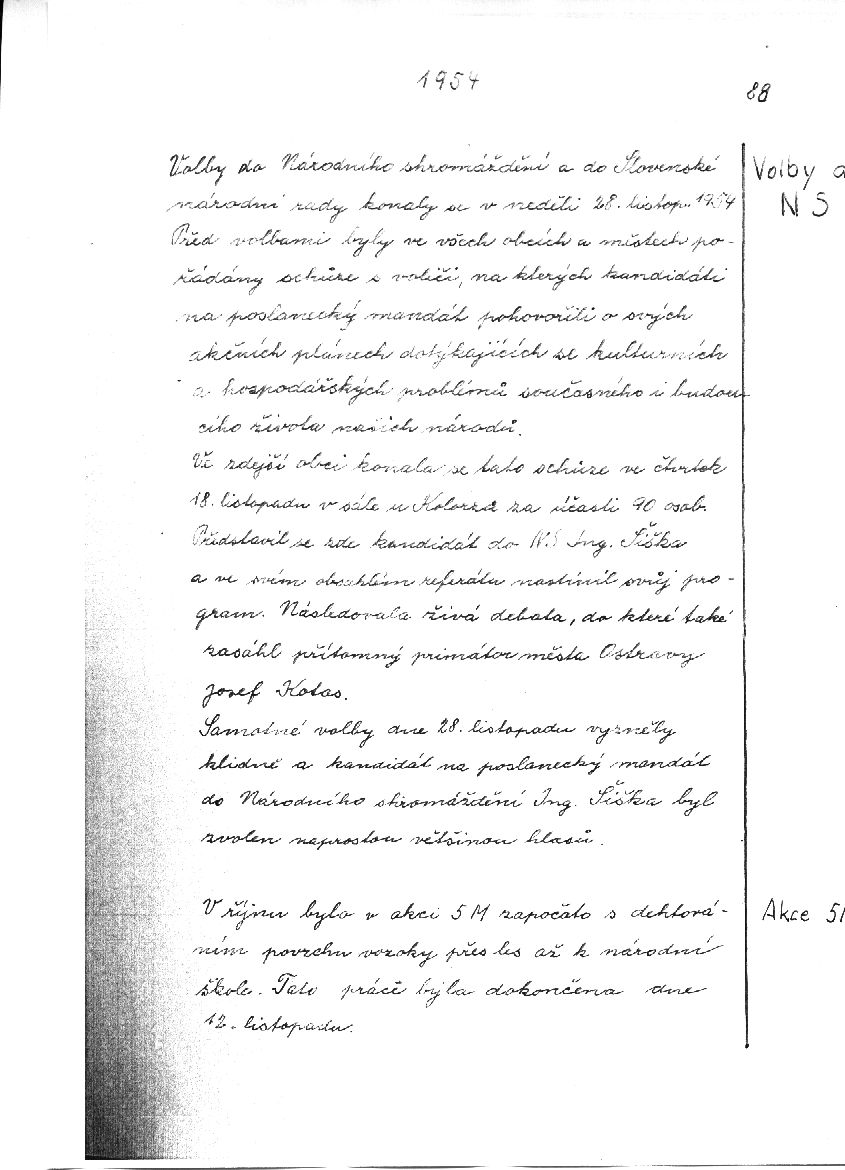 1954
88
Volby do Národního shromáždění a do Slovenské
národní rady konaly se v neděli 28. listop. 1954
Před volbami byly ve všech obcích a městech po-
řádány schůze s voliči, na kterých kandidáti
na poslanecký mandát pohovořili o svých
akčních plánech dotýkajících se kulturních
a hospodářských problémů současného i budou
cího života našich národů.
Ve zdejší obci konala se tato schůze ve čtvrtek
18. listopadu v sále u Kolorza za účasti 90 osob.
Představil se zde kandidát do N.S Ing. Šiška
a ve svém obsáhlém referátu nastínil svůj pro-
gram. Následovala živá debata, do které také
zasáhl přítomný primátor města Ostravy
Josef Kotas.
Samotné volby dne 28. listopadu vyzněly
klidně a kandidát na poslanecký mandát
do Národního shromáždění Ing. Šiška byl
zvolen naprostou většinou hlasů.
V říjnu bylo v akci 5M započato s dehtová-
ním povrchu vozovky přes les až k národní
škole. Tato práce byla dokončena dne
12. listopadu.
Volby d
NS
Akce 5